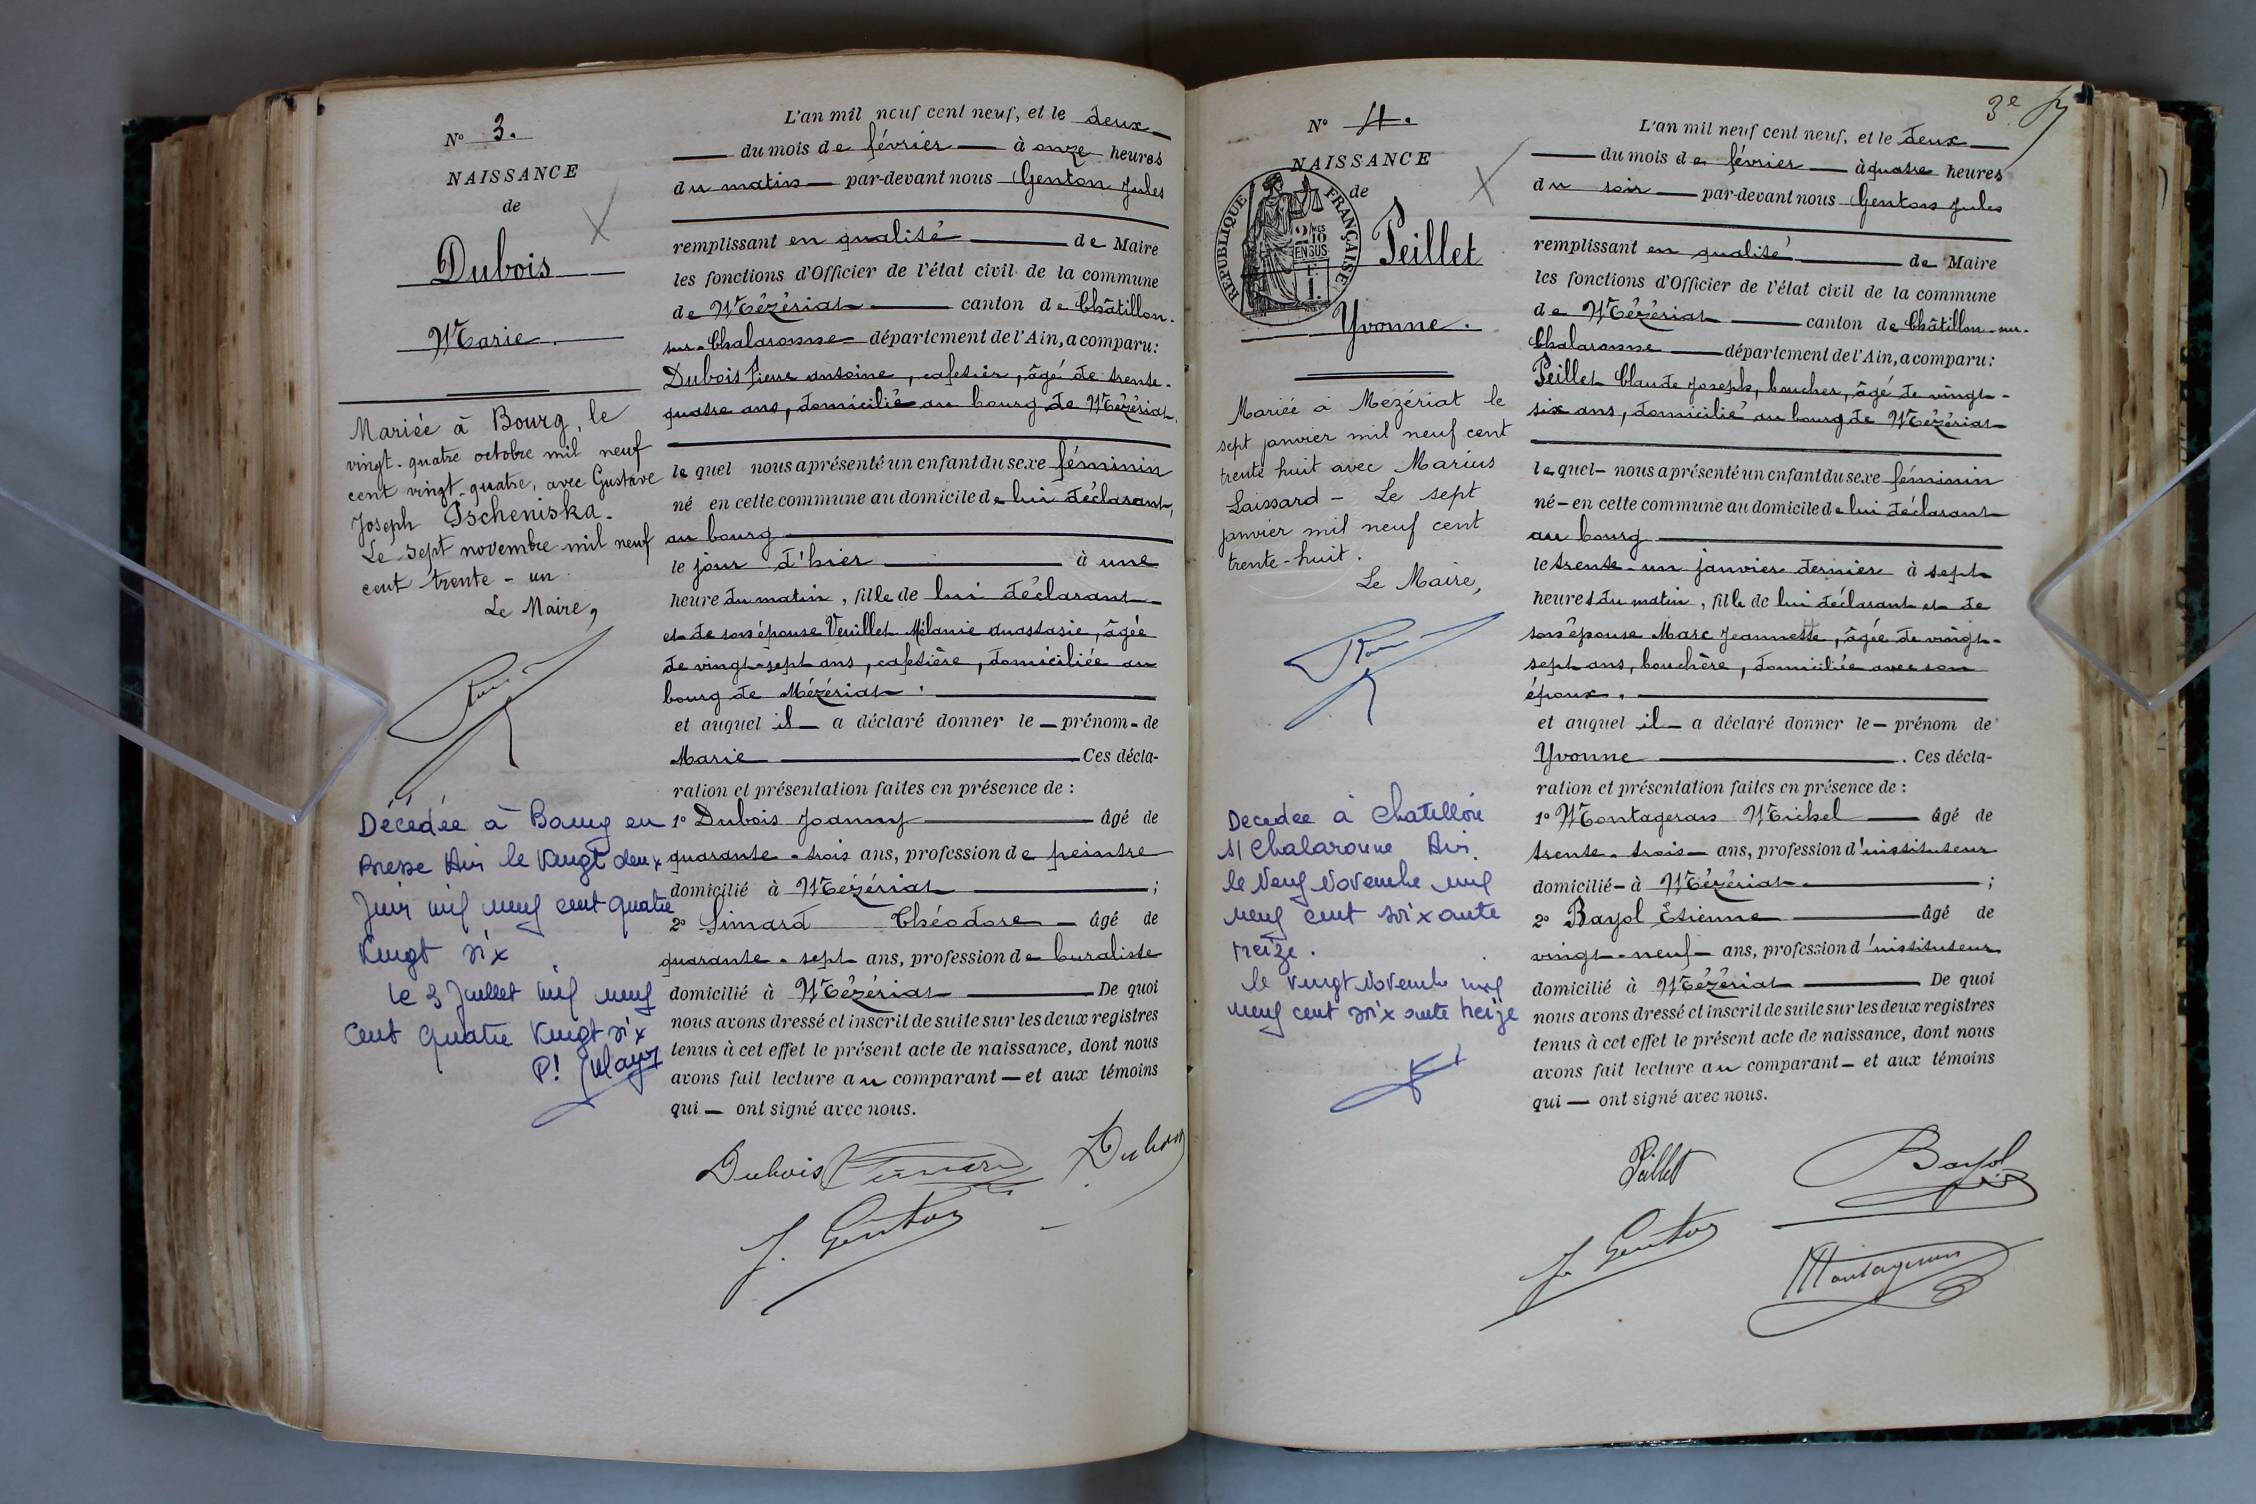 N° 3.
NAISSANCE
de
Dubois
Marie.
Mariée à Bourg, le
vingt-quatre octobre mil neuf
cent vingt-quatre, avec Gustave
Joseph Pscheniska.
Le sept novembre mil neuf
cent trente-un.
Le Maire,
Décédée à Bourg en
Bresse Ain le vingt deux
Juin mil neuf cent quatre
vingt six
le 3 Juillet mil neuf
cent quatre vingt six
L'an mil neuf cent neuf, et le deux
du mois de février à onze heures
du matin par-devant nous Genton Jules
remplissant en qualité de Maire
les fonctions d'Officier de l'état civil de la commune
de Mézériat canton de Châtillon-
sur-Chalaronne département de l'Ain, a comparu:
Dubois Pierre Antoine, cafetier, âgé de trente-
quatre ans, domicilié au bourg de Mézériat,
lequel nous a présenté un enfant du sexe féminin
né en cette commune au domicile de lui déclarant,
au bourg
le jour d'hier à une
heure du matin, fille de lui déclarant
et de son épouse Veuillet Mélanie Anastasie, âgée
de vingt-sept ans, cafetière, domiciliée au
bourg de Mézériat.
et auquel il a déclaré donner le prénom de
Marie Ces décla-
ration et présentation faites en présence de :
1° Dubois Joanny âgé de
quarante-trois ans, profession de peintre
domicilié à Mézériat ;
2° Simard Théodore âgé de
quarante-sept ans, profession de buraliste
domicilié à Mézériat De quoi
nous avons dressé et inscrit de suite sur les deux registres
tenus à cet effet le présent acte de naissance, dont nous
avons fait lecture au comparant et aux témoins
qui ont signé avec nous.
Dubois
J. Genton
3e
N° 4.
NAISSANCE
de
RÉPUBLIQUE FRANÇAISE
Peillet
Yvonne.
Mariée à Mézériat le
sept janvier mil neuf cent
trente huit avec Marius
Laissard - Le sept
janvier mil neuf cent
trente-huit.
Le Maire,
Décédée à Chatillon
s/ Chalaronne Ain.
le Neuf Novembre mil
neuf cent soixante
treize.
le vingt Novembre mil
neuf cent soixante treize
L'an mil neuf cent neuf, et le deux
du mois de février à quatre heures
du soir par-devant nous Genton Jules
remplissant en qualité de Maire
les fonctions d'Officier de l'état civil de la commune
de Mézériat canton de Châtillon-sur-
Chalaronne département de l'Ain, a comparu:
Peillet Claude Joseph, boucher, âgé de vingt-
six ans, domicilié au bourg de Mézériat
lequel nous a présenté un enfant du sexe féminin
né en cette commune au domicile de lui déclarant
au bourg
le trente-un janvier dernier à sept
heures du matin, fille de lui déclarant et de
son épouse Marc Jeannette, âgée de vingt-
sept ans, bouchère, domiciliée avec son
époux.
et auquel il a déclaré donner le prénom de
Yvonne . Ces décla-
ration et présentation faites en présence de :
1° Montageran Michel âgé de
trente-trois ans, profession d'instituteur
domicilié à Mézériat ;
2° Bayol Etienne âgé de
vingt-neuf ans, profession d'instituteur
domicilié à Mézériat De quoi
nous avons dressé et inscrit de suite sur les deux registres
tenus à cet effet le présent acte de naissance, dont nous
avons fait lecture au comparant et aux témoins
qui ont signé avec nous.
Peillet Bayol
J. Genton Montageran